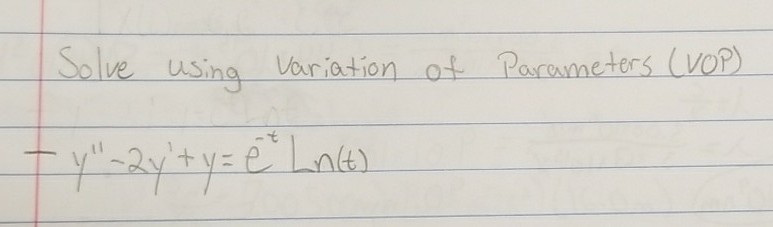 Solve using Variation of Parameters (VOP)
- y'' - 2y' + y = e^-t Ln(t)